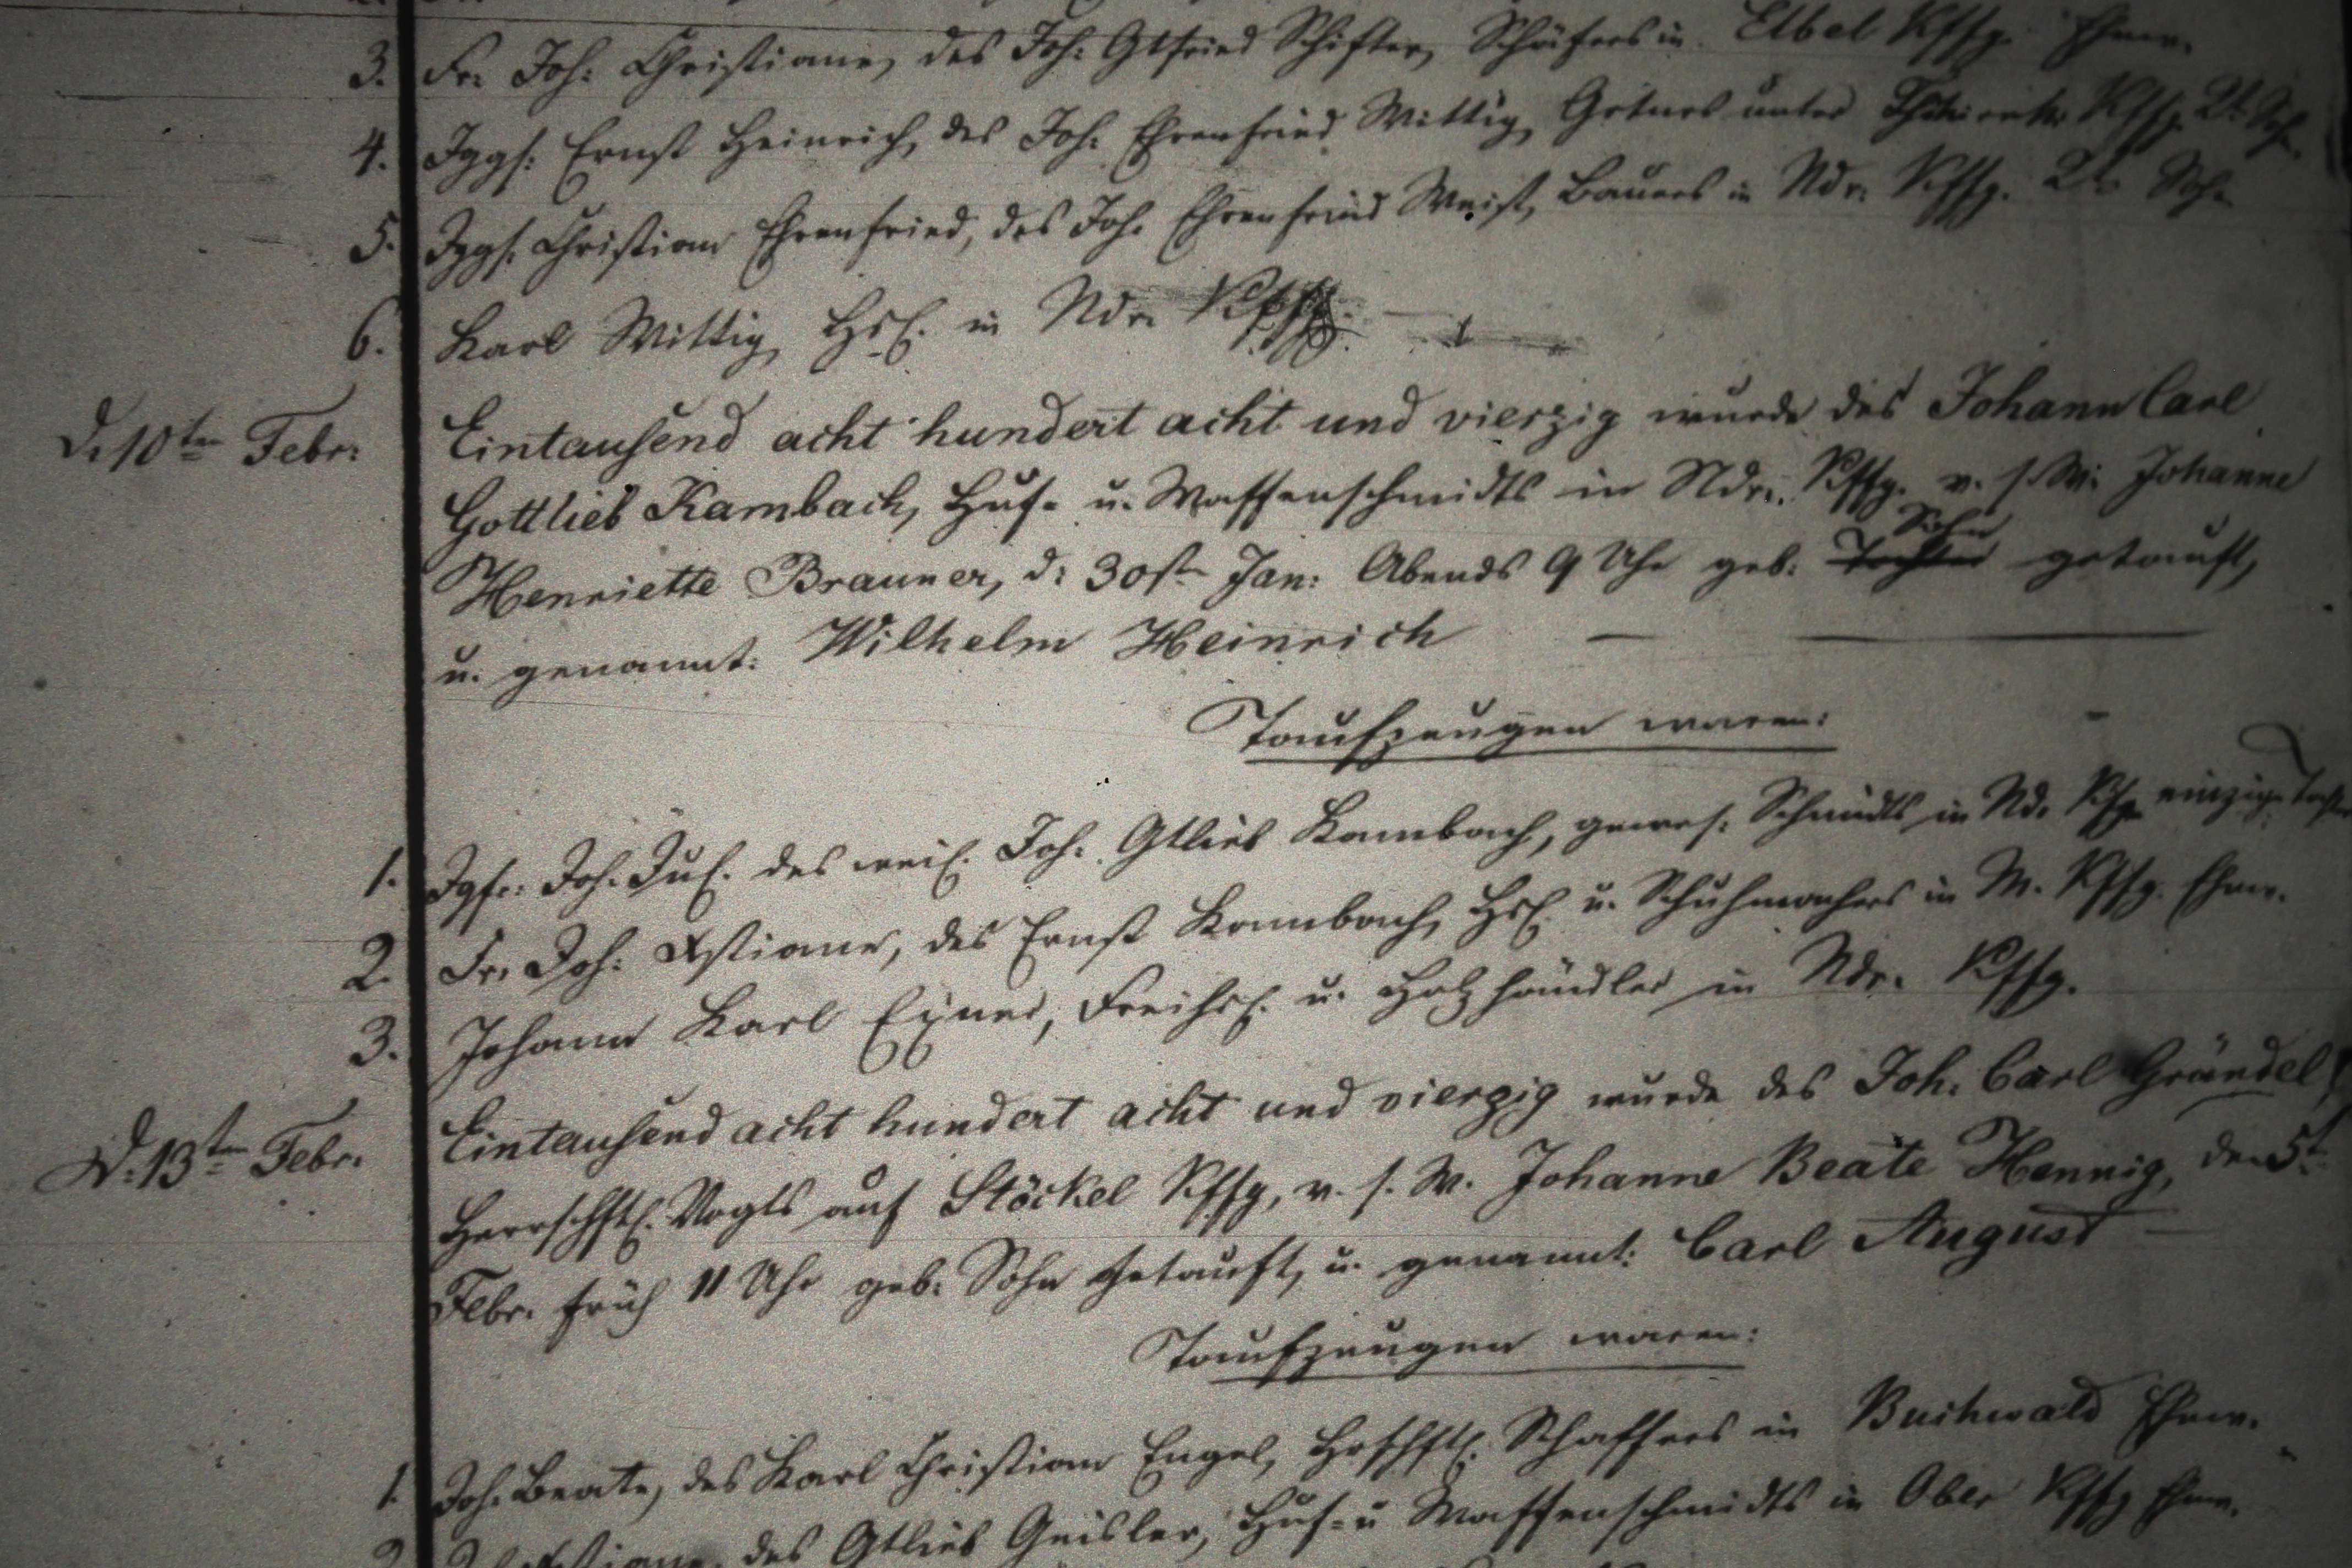 3. Fr: Joh: Christiane, des Joh: Gtfried Schifter, Schäfers in Elbel Kffg. Ehew.
4. Iggs: Ernst Heinrich, des Joh: Ehrenfried Wittig, Grtners unter Kffg. 2t. Sohn.
5. Iggs. Christian Ehrenfried, des Joh. Ehrenfried Weist, Bauers in Ndr: Kffg. 2t. Sohn
6. Karl Wittig, Hsl. in Ndr. Kffg.
D. 10ten Febr: Eintausend acht hundert acht und vierzig wurde des Johann Carl
Gottlieb Kambach, Huf- u. Waffenschmidts in Ndr. Kffg. v. s. W: Johanne
Sohn
Henriette Brauner, d: 30st. Jan: Abends 9 Uhr geb: Tochter getauft,
u. genannt: Wilhelm Heinrich
Taufzeugen waren:
1. Jgfr: Joh. Jul. des weil. Joh: Gtlieb Kambach, gewes: Schmidts in Nd. Kffg. einzige Tocht
2. Fr. Joh: Xstiane, des Ernst Kambach, Hsl. u. Schuhmachers in M. Kffg. Ehew.
3. Johann Karl Exner, Freihsl. u. Holzhändler in Ndr. Kffg.
D. 13ten Febr. Eintausend acht hundert acht und vierzig wurde des Joh. Carl Grändel,
Herrschftl. Vogts auf Stöckel Kffg, v. s. W. Johanne Beate Hennig, den 5t.
Febr. früh 11 Uhr geb: Sohn getauft, u. genannt: Carl August
Taufzeugen waren:
1. Joh. Beate, des Karl Christian Engel, Hrschftl. Schaffers in Buchwald Ehew.
des Gtlieb Geisler, Huf- u Waffenschmidts in Ober Kffg Ehew.